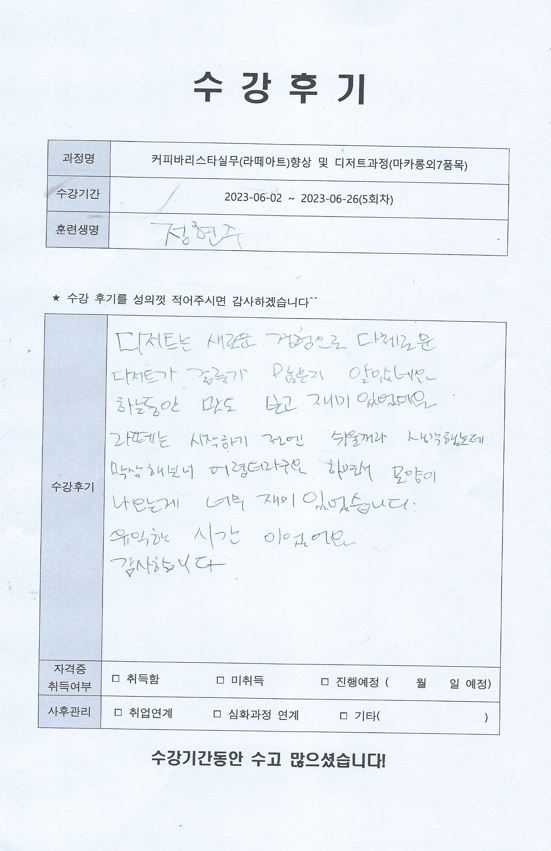 수강후기
과정명 커피바리스타실무(라떼아트)향상 및 디저트과정(마카롱외7품목)
수강기간 2023-06-02 ~ 2023-06-26(5회차)
훈련생명 정현주
★ 수강 후기를 성의껏 적어주시면 감사하겠습니다^^
수강후기
디저트는 새로운 경험으로 다채로운
디저트가 많은지 알았네요
하는동안 맛도 보고 재미있었어요
라떼는 시작하기 전엔 쉬울거라 생각했는데
막상해보니 어렵더라구요 하면서 모양이
나오는게 너무 재미있었습니다.
유익한 시간 이었어요
감사합니다
자격증 취득여부 □ 취득함 □ 미취득 □ 진행예정 ( 월 일 예정)
사후관리 □ 취업연계 □ 심화과정 연계 □ 기타( )
수강기간동안 수고 많으셨습니다!